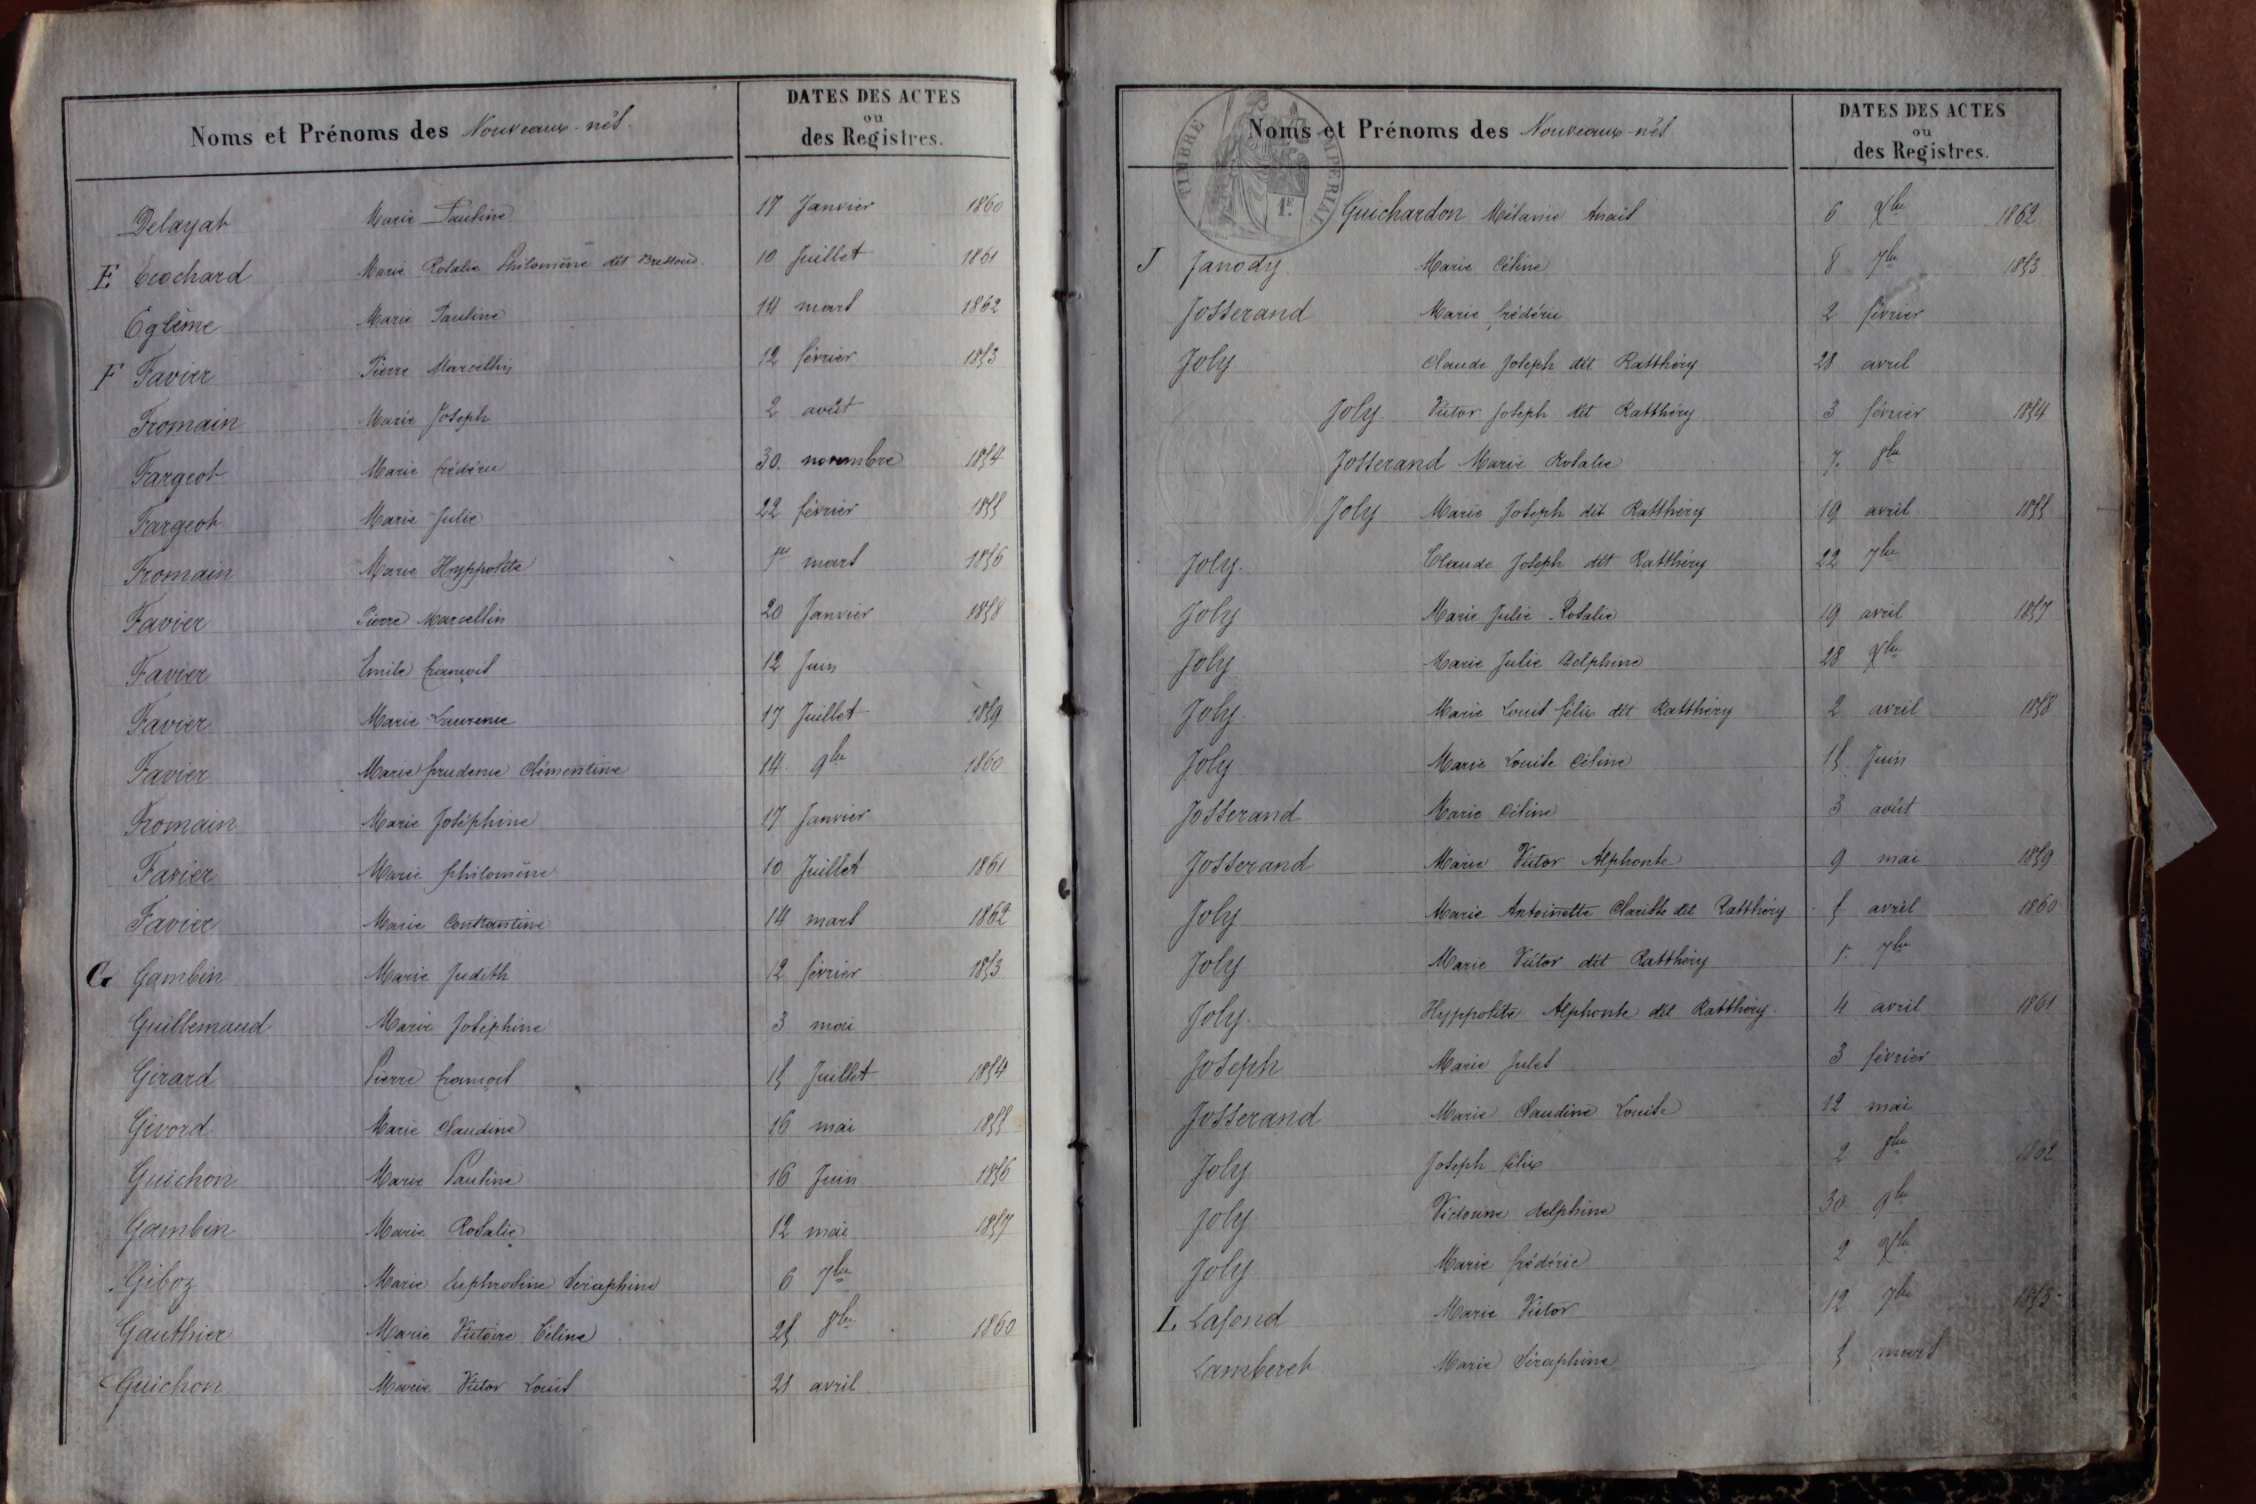 Noms et Prénoms des Nouveaux-nés.
DATES DES ACTES
ou
des Registres.
Delayat Marie Pauline 17 Janvier 1860
E Ecochard Marie Rosalie Philomène dit 10 Juillet 1861
Eglème Marie Pauline 14 mars 1862
F Favier Pierre Marcellin 12 février 1853
Fromain Marie Joseph 2 août
Fargeot Marie frédéric 30 novembre 1854
Fargeot Marie Julie 22 février 1855
Fromain Marie Hyppolite 1er mars 1856
Favier Pierre Marcellin 20 Janvier 1858
Favier Emile françois 12 Juin
Favier Marie Laurence 17 Juillet 1859
Favier Marie prudence Clémentine 14 9bre 1860
Fromain Marie Joséphine 17 Janvier
Favier Marie philomène 10 Juillet 1861
Favier Marie Constantine 14 mars 1862
G Gambin Marie Judith 12 février 1853
Guillemaud Marie Joséphine 3 mai
Girard Pierre françois 15 Juillet 1854
Givord Marie Claudine 16 mai 1855
Guichon Marie Pauline 16 Juin 1856
Gambin Marie Rosalie 12 mai 1857
Giboz Marie Euphrosine Séraphine 6 7bre
Gauthier Marie Victoire Céline 25 8bre 1860
Guichon Marie Victor Louis 21 avril
Noms et Prénoms des Nouveaux-nés
DATES DES ACTES
ou
des Registres.
TIMBRE IMPERIAL
1F.
Guichardon Mélanie Anaïs 6 Xbre 1862
J Janody Marie Céline 8 7bre 1853
Josserand Marie frédéric 2 février
Joly Claude Joseph dit Ratthéry 28 avril
Joly Victor Joseph dit Ratthéry 3 février 1854
Josserand Marie Rosalie 7 8bre
Joly Marie Joseph dit Ratthéry 19 avril 1855
Joly Claude Joseph dit Ratthéry 22 7bre
Joly Marie Julie Rosalie 19 avril 1857
Joly Marie Julie Delphine 28 Xbre
Joly Marie Louis félix dit Ratthéry 2 avril 1858
Joly Marie Louise Céline 15 Juin
Josserand Marie Céline 3 août
Josserand Marie Victor Alphonse 9 mai 1859
Joly Marie Antoinette Clarisse dit Ratthéry 5 avril 1860
Joly Marie Victor dit Ratthéry 7bre
Joly Hyppolite Alphonse dit Ratthéry 4 avril 1861
Joseph Marie Jules 3 février
Josserand Marie Claudine Louise 12 mai
Joly Joseph félix 2 8bre 1862
Joly Victorine delphine 30 9bre
Joly Marie frédéric 2 Xbre
L Lafond Marie Victor 12 7bre 1853
Lamberet Marie Séraphine 5 mars